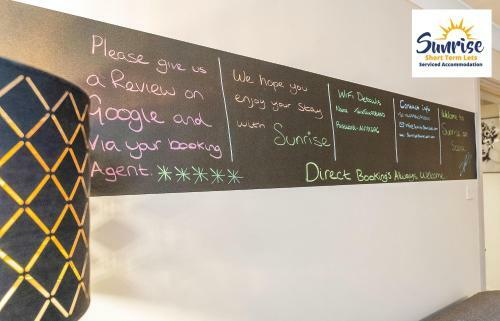 Sunrise
Short Term Lets
Serviced Accommodation
Please give us
a Review on
Google and
Via your booking
Agent.
We hope you
enjoy your stay
with Sunrise
WiFi Details
Name
Password
Contact Info
Welcome to
Sunrise on
Direct Booking's Always Welcome